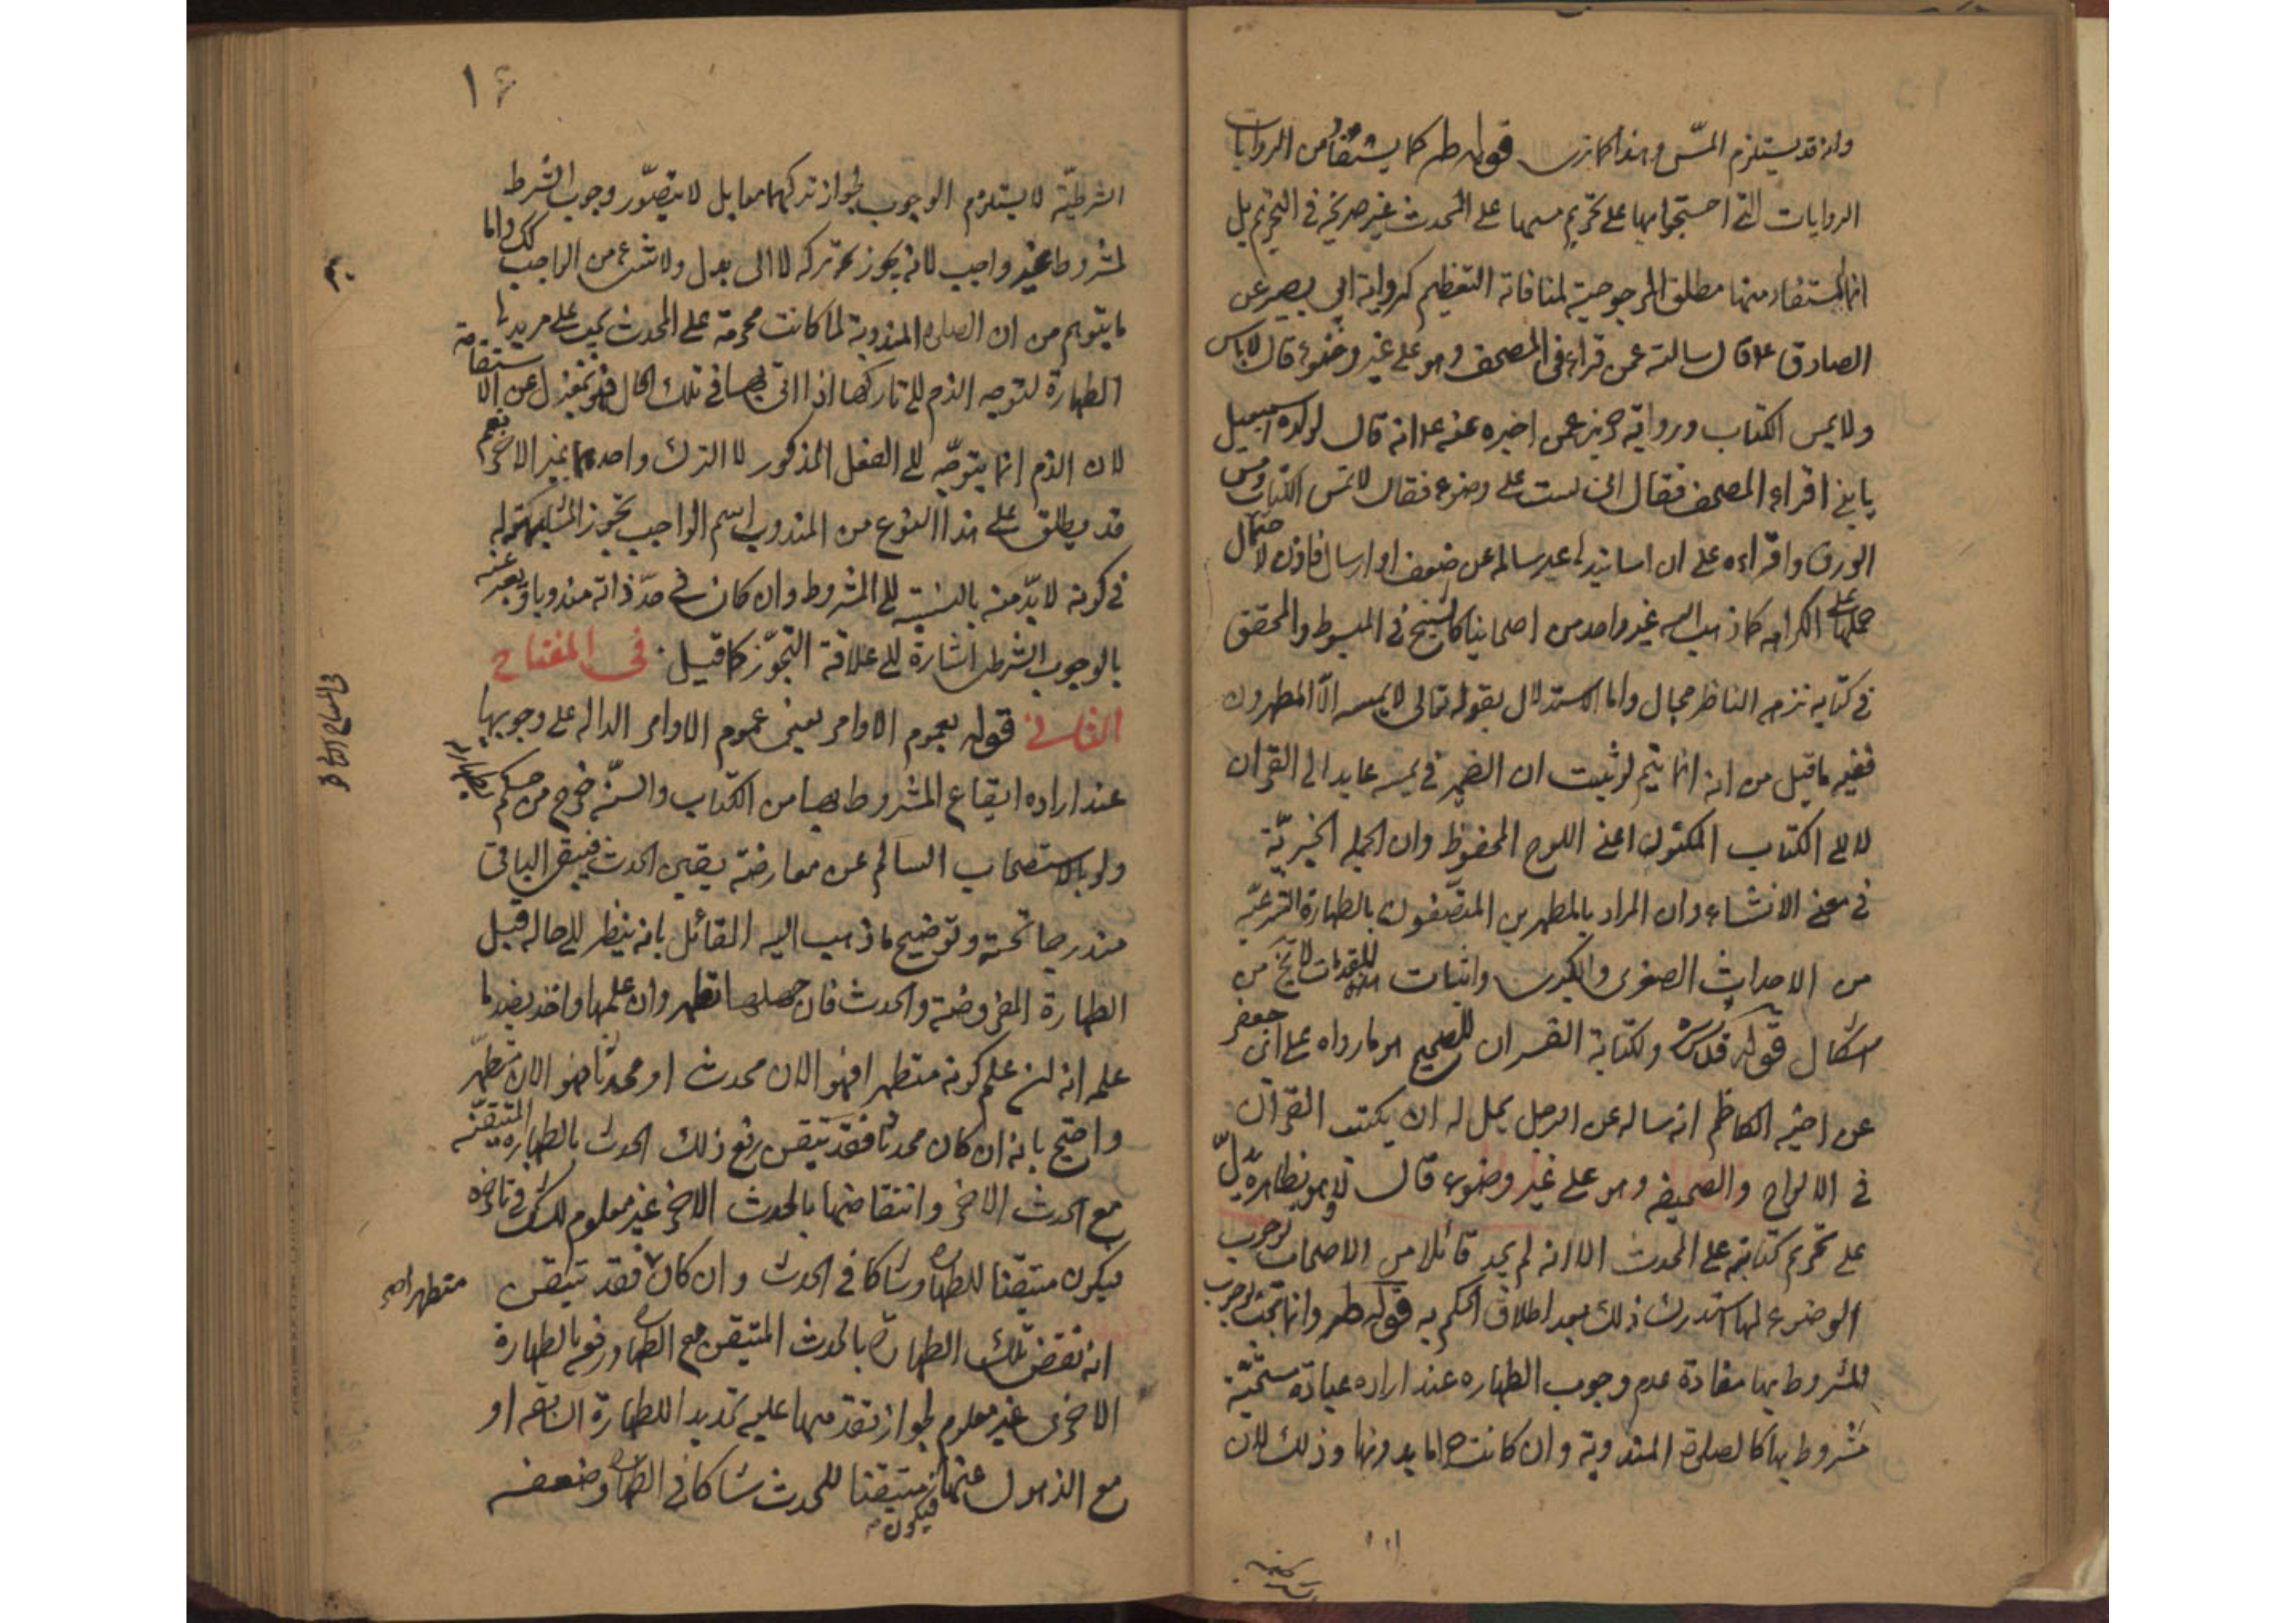 وانه قد يستلزم المسّ وهذا كما ترى قوله طه كما يستفاد من الروايات
الروايات التى احتجوا بها على تحريم مسها على المحدث غير صريحة فى التحريم بل
انما المستفاد منها مطلق المرجوحية لمنافاته التعظيم كرواية ابى بصير عن
الصادق ع قال سالته عمن قراء فى المصحف وهو على غير وضوء قال لا باس
ولا يمس الكتاب ورواية حريز عمن اخبره عنه ع انه قال لولده اسمعيل
يا بنى اقراء المصحف فقال انى لست على وضوء فقال لا تمس الكتاب ومس
الورق واقراءه على ان اسانيدها غير سالمة عن ضعف او ارسال فاذن لاحتمال
حملها على الكراهه كما ذهب اليه غير واحد من اصحابنا كالشيخ فى المبسوط والمحقق
فى كتابيه نزهه الناظر مجال واما الاستدلال بقوله تعالى لا يمسه الّا المطهرون
ففيه ما قيل من انه انما يتم لو ثبت ان الضمير فى يمسه عايد الى القران
لا الى الكتاب المكنون اعنى اللوح المحفوظ وان الجمله الخبريّة
فى معنى الانشاء وان المراد بالمطهرين المتصّفون بالطهارة الشرعيّة
من الاحداث الصغرى والكبرى واثبات هذه المقدمات لا يخ من
اشكال قوله قدس سره ولكتابة القران للصحيح هو ما رواه على بن جعفر
عن اخيه الكاظم انه ساله عن الرجل يحل له ان يكتب القران
فى الالواح والصحيفه وهو على غير وضوء قال لا وهو بظاهره يدلّ
على تحريم كتابته على المحدث الا انه لم يجد قائلا من الاصحاب بوجوب
الوضوء لها استدرك ذلك بعد اطلاق الحكم به قوله طه وانما تجب لوجوب
المشروط بها مفادة عدم وجوب الطهاره عند اراده عبادة مستحبّة
مشروط بها كالصلوة المندوبة وان كانت حراما بدونها وذلك لان
١٦
الشرطيّة لا يستلزم الوجوب لجواز تركهما معا بل لا يتصوّر وجوب الشرط
لمشروط غير واجب لانه يجوز تركه لا الى بدل ولا شىء من الواجب كك واما
ما يتوهم من ان الصلوه المندوبة لما كانت محرمة على المحدث يجب على مريدها
الطهارة لتوجه الذم الى تاركها اذا اتى بها فى تلك الحال فهو بمعزل عن الاستقامة
لان الذم انما يتوجّه الى الفعل المذكور لا الترك واحدهما غير الاخر نعم
قد يطلق على هذا النوع من المندوب اسم الواجب تجوزا لمشابهته له
فى كونه لا بدّ منه بالنسبة الى المشروط وان كان فى حدّ ذاته مندوبا ويعبر عنه
بالوجوب الشرطى اشارة الى علاقة التجوّز كما قيل فى المفتاح
الثانى قوله بعموم الاوامر يعنى عموم الاوامر الداله على وجوبها
عند اراده ايقاع المشروط بها من الكتاب والسنّه خرج من حكم
ولو بالاستصحاب السالم عن معارضة يقين الحدث فيبقى الباقى
مندرجا تحته وتوضيح ما ذهب اليه القائل بانه ينظر الى حاله قبل
الطهارة المفروضة والحدث فان جهلها تطهر وان علمها واخذ بضد ما
علمه انه لمن علم كونه متطهرا فهو الان محدث او محدثا فهو الان متطهّر
واحتج بانه ان كان محدثا فقد تيقن رفع ذلك الحدث بالطهاره المتيقّنه
مع الحدث الاخر وانتقاضها بالحدث الاخر غير معلوم للشك فى تاخره
فيكون متيقنا للطهاره وشاكا فى الحدث وان كان فقد تيقن
متطهرا
انه نقض تلك الطهارة بالحدث المتيقن مع الطهاره ورفعه بالطهارة
الاخرى غير معلوم لجواز تقدمها عليه تجديدا للطهارة السابقه او
مع الذهول عنها فيكون متيقنا للحدث شاكا فى الطهاره وضعفه